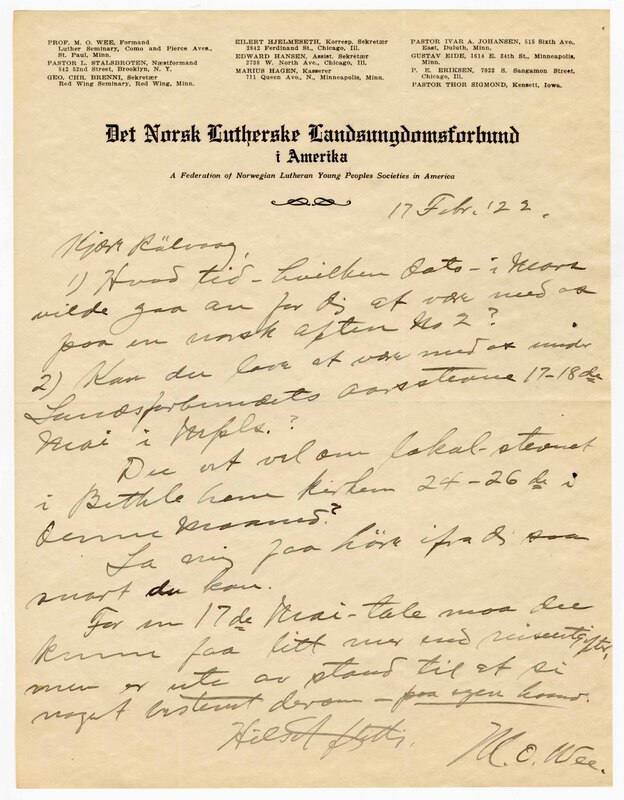 PROF. M. O. WEE, Formand
Luther Seminary, Como and Pierce Aves.,
St. Paul, Minn.
PASTOR L. STALSBROTEN, Næstformand
842 52nd Street, Brooklyn, N. Y.
GEO. CHR. BRENNI, Sekretær
Red Wing Seminary, Red Wing, Minn.
EILERT HJELMESETH, Korresp. Sekretær
3842 Ferdinand St., Chicago, Ill.
EDWARD HANSEN, Assist. Sekretær
2738 W. North Ave., Chicago, Ill.
MARIUS HAGEN, Kasserer
711 Queen Ave., N., Minneapolis, Minn.
PASTOR IVAR A. JOHANSEN, 515 Sixth Ave.,
East, Duluth, Minn.
GUSTAV EIDE, 1614 E. 34th St., Minneapolis,
Minn.
P. E. ERIKSEN, 7023 S. Sangamon Street,
Chicago, Ill.
PASTOR THOR SIGMOND, Kensett, Iowa.
Det Norsk Lutherske Landsungdomsforbund
i Amerika
A Federation of Norwegian Lutheran Young Peoples Societies in America
17 Febr. '22.
Kjære Rölvaag,
1) Hvad tid – hvilken dato – i Mars
vilde gaa an for dig at være med os
paa en norsk aften No 2?
2) Kan du love at være med os under
Landsforbundets aarsstevne 17–18de
Mai i Mpls.?
Du vet vel om lokal-stevnet
i Bethlehem kirken 24–26de i
denne maaned?
La mig faa höre ifra dig saa
snart du kan.
For en 17de Mai-tale maa du
kunne faa litt mer end reiseutgifter,
men er ute av stand til at si
noget bestemt derom – paa egen haand.
Hilset
M. O. Wee.